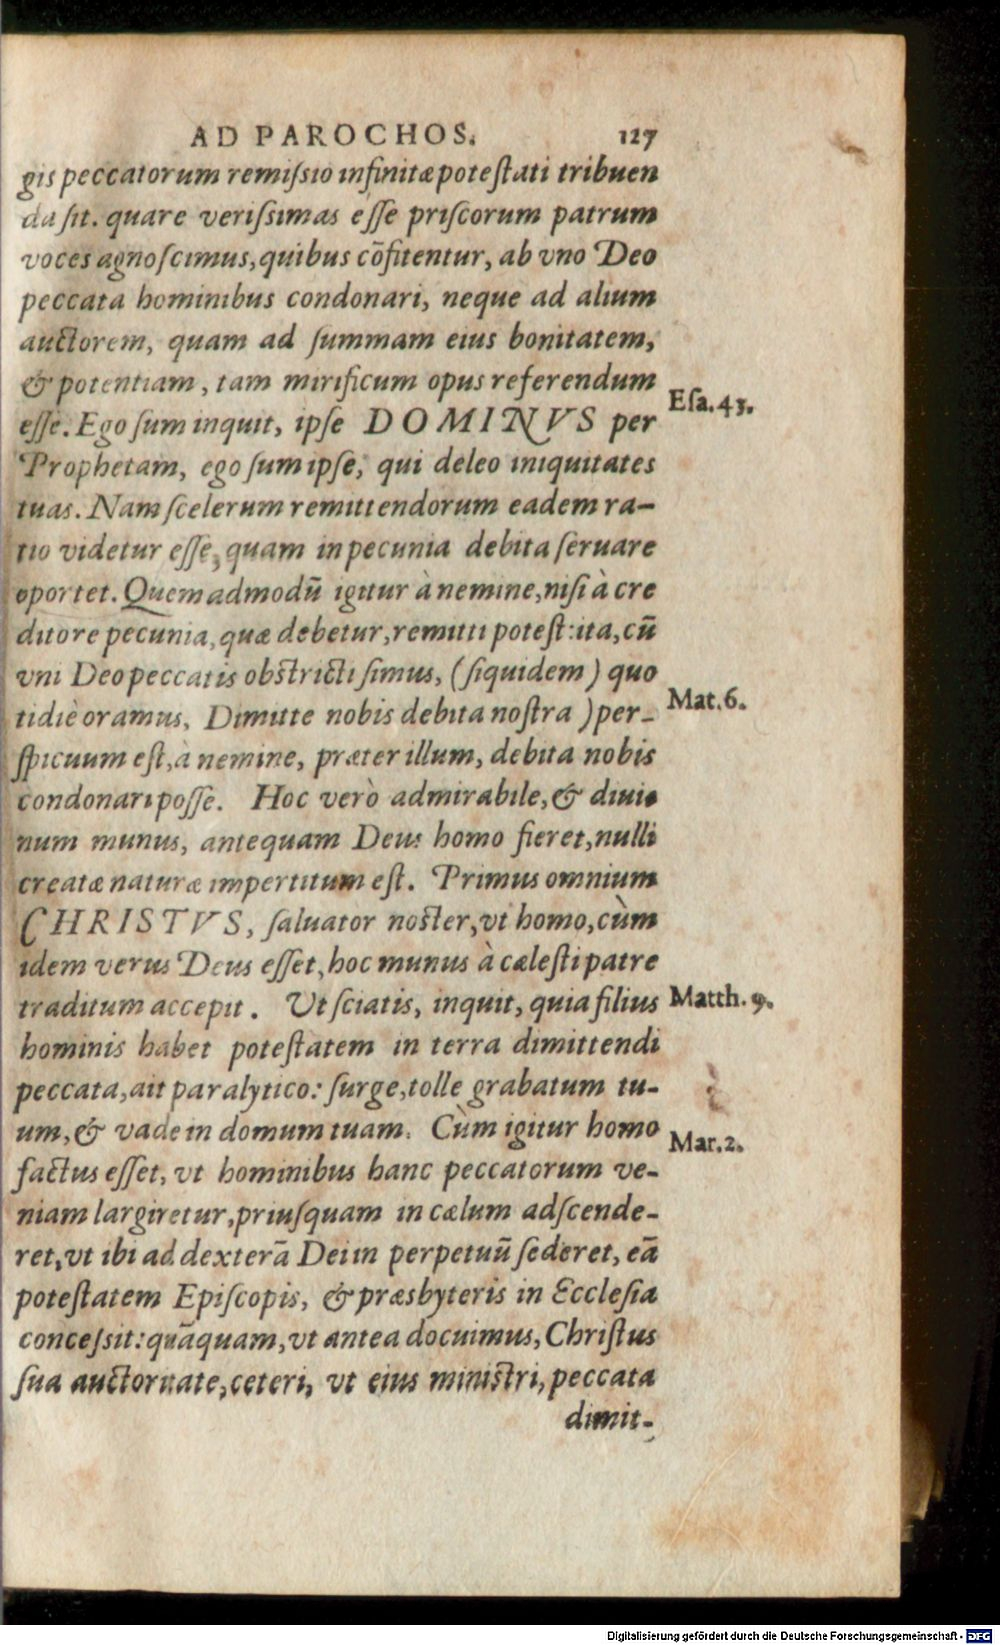 AD PAROCHOS. 127
gis peccatorum remiſsio infinitæ poteſtati tribuen
da ſit. quare veriſsimas eſſe priſcorum patrum
voces agnoſcimus, quibus cōfitentur, ab vno Deo
peccata hominibus condonari, neque ad alium
auctorem, quam ad ſummam eius bonitatem,
& potentiam, tam mirificum opus referendum
Eſa.43.
eſſe. Ego ſum inquit, ipſe DOMINVS per
Prophetam, ego ſum ipſe, qui deleo iniquitates
tuas. Nam ſcelerum remittendorum eadem ra-
tio videtur eſſe, quam in pecunia debita ſeruare
oportet. Quemadmodū igitur à nemine, niſi à cre
ditore pecunia, quæ debetur, remitti poteſt: ita, cū
vni Deo peccatis obſtricti ſimus, (ſiquidem) quo
Mat.6.
tidiè oramus, Dimitte nobis debita noſtra) per-
ſpicuum eſt, à nemine, præter illum, debita nobis
condonari poſſe. Hoc verò admirabile, & diui-
num munus, antequam Deus homo fieret, nulli
creatæ naturæ impertitum eſt. Primus omnium
CHRISTVS, ſaluator noſter, vt homo, cùm
idem verus Deus eſſet, hoc munus à cæleſti patre
traditum accepit. Ut ſciatis, inquit, quia filius
Matth. 9.
hominis habet poteſtatem in terra dimittendi
peccata, ait paralytico: ſurge, tolle grabatum tu-
um, & vade in domum tuam. Cùm igitur homo
Mar.2.
factus eſſet, vt hominibus hanc peccatorum ve-
niam largiretur, priuſquam in cælum adſcende-
ret, vt ibi ad dexterā Dei in perpetuū ſederet, eā
poteſtatem Epiſcopis, & præsbyteris in Eccleſia
conceſsit: quāquam, vt antea docuimus, Chriſtus
ſua auctoritate, ceteri, vt eius miniſtri, peccata
dimit-
Digitalisierung gefördert durch die Deutsche Forschungsgemeinschaft - DFG